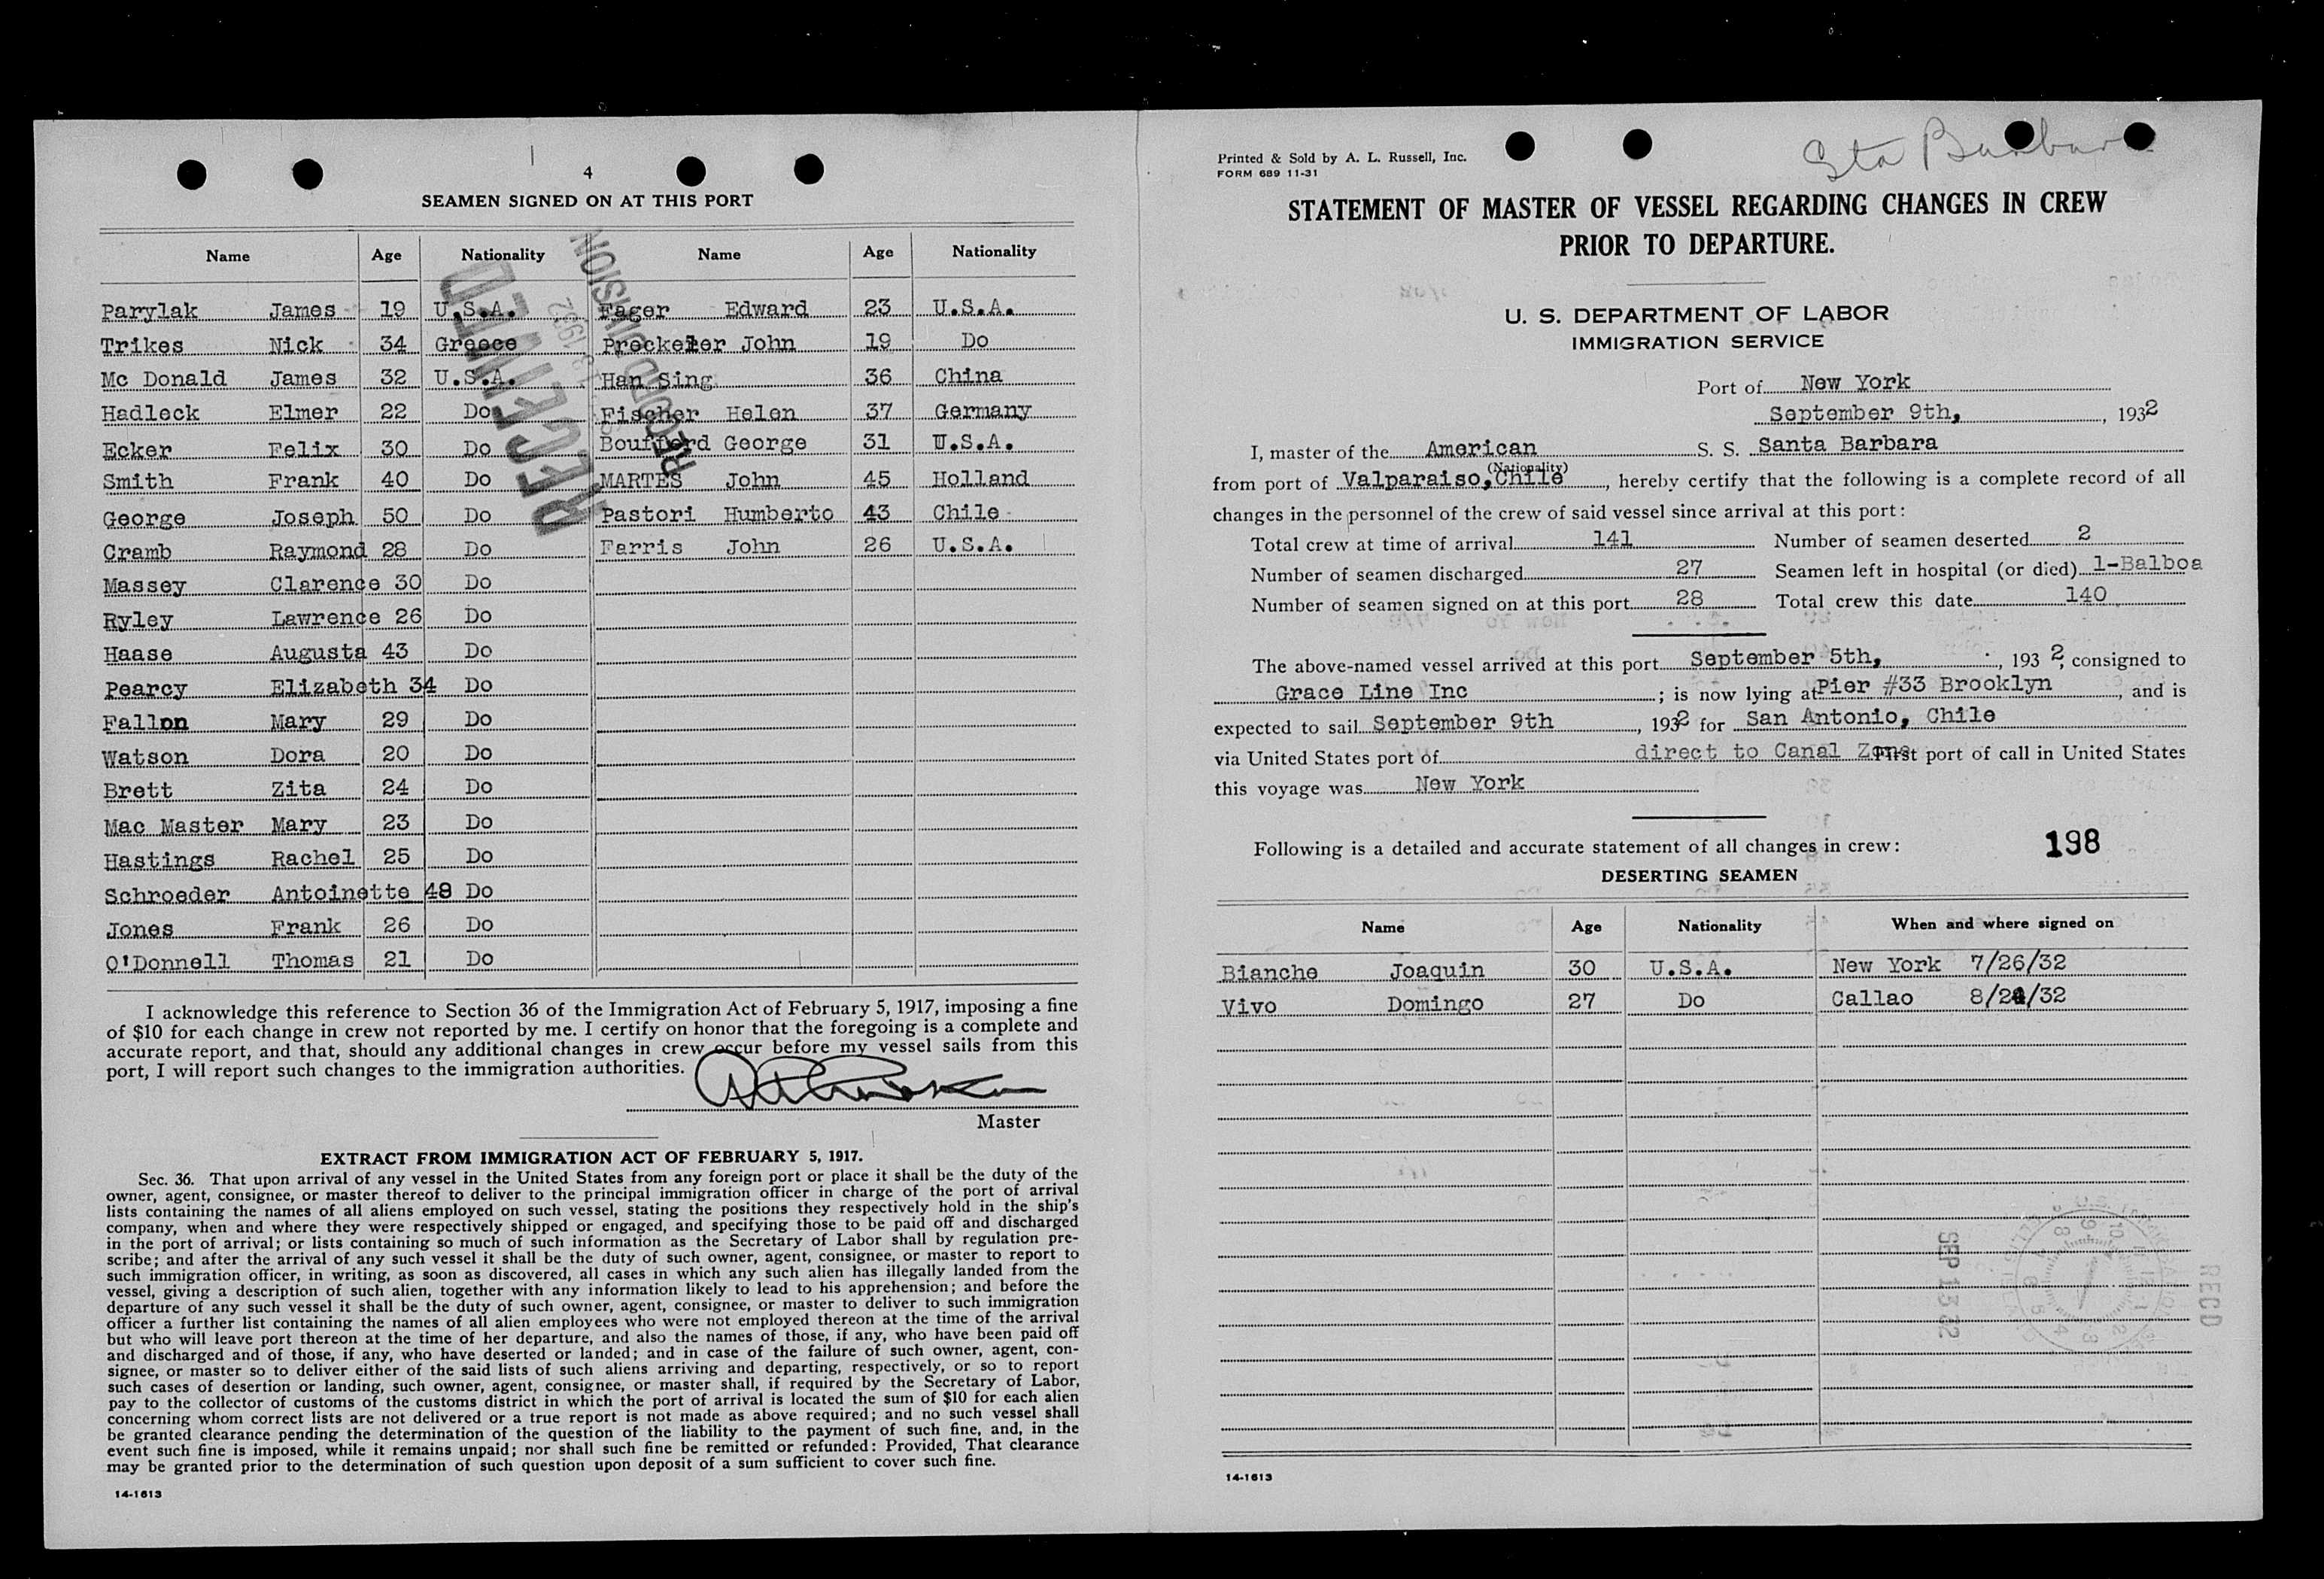 4
SEAMEN SIGNED ON AT THIS PORT
Name Age Nationality Name Age Nationality
Parylak James 19 U.S.A. Eager Edward 23 U.S.A.
Trikes Nick 34 Greece John 19 Do
Mc Donald James 32 U.S.A. Han Sing 36 China
Hadleck Elmer 22 Do Fischer Helen 37 Germany
Ecker Felix 30 Do George 31 U.S.A.
Smith Frank 40 Do MARTES John 45 Holland
George Joseph 50 Do Pastori Humberto 43 Chile
Cramb Raymond 28 Do Farris John 26 U.S.A.
Massey Clarence 30 Do
Ryley Lawrence 26 Do
Haase Augusta 43 Do
Pearcy Elizabeth 34 Do
Fallon Mary 29 Do
Watson Dora 20 Do
Brett Zita 24 Do
Mac Master Mary 23 Do
Hastings Rachel 25 Do
Schroeder Antoinette 48 Do
Jones Frank 26 Do
O'Donnell Thomas 21 Do
RECEIVED
1932
RECORD DIVISION
I acknowledge this reference to Section 36 of the Immigration Act of February 5, 1917, imposing a fine
of $10 for each change in crew not reported by me. I certify on honor that the foregoing is a complete and
accurate report, and that, should any additional changes in crew occur before my vessel sails from this
port, I will report such changes to the immigration authorities.
Master
EXTRACT FROM IMMIGRATION ACT OF FEBRUARY 5, 1917.
Sec. 36. That upon arrival of any vessel in the United States from any foreign port or place it shall be the duty of the
owner, agent, consignee, or master thereof to deliver to the principal immigration officer in charge of the port of arrival
lists containing the names of all aliens employed on such vessel, stating the positions they respectively hold in the ship's
company, when and where they were respectively shipped or engaged, and specifying those to be paid off and discharged
in the port of arrival; or lists containing so much of such information as the Secretary of Labor shall by regulation pre-
scribe; and after the arrival of any such vessel it shall be the duty of such owner, agent, consignee, or master to report to
such immigration officer, in writing, as soon as discovered, all cases in which any such alien has illegally landed from the
vessel, giving a description of such alien, together with any information likely to lead to his apprehension; and before the
departure of any such vessel it shall be the duty of such owner, agent, consignee, or master to deliver to such immigration
officer a further list containing the names of all alien employees who were not employed thereon at the time of the arrival
but who will leave port thereon at the time of her departure, and also the names of those, if any, who have been paid off
and discharged and of those, if any, who have deserted or landed; and in case of the failure of such owner, agent, con-
signee, or master so to deliver either of the said lists of such aliens arriving and departing, respectively, or so to report
such cases of desertion or landing, such owner, agent, consignee, or master shall, if required by the Secretary of Labor,
pay to the collector of customs of the customs district in which the port of arrival is located the sum of $10 for each alien
concerning whom correct lists are not delivered or a true report is not made as above required; and no such vessel shall
be granted clearance pending the determination of the question of the liability to the payment of such fine, and, in the
event such fine is imposed, while it remains unpaid; nor shall such fine be remitted or refunded: Provided, That clearance
may be granted prior to the determination of such question upon deposit of a sum sufficient to cover such fine.
14-1613
Printed & Sold by A. L. Russell, Inc.
FORM 689 11-31
Sta Barbara
STATEMENT OF MASTER OF VESSEL REGARDING CHANGES IN CREW
PRIOR TO DEPARTURE.
U. S. DEPARTMENT OF LABOR
IMMIGRATION SERVICE
Port of New York
September 9th, , 1932
I, master of the American S. S. Santa Barbara
(Nationality)
from port of Valparaiso, Chile , hereby certify that the following is a complete record of all
changes in the personnel of the crew of said vessel since arrival at this port:
Total crew at time of arrival 141 Number of seamen deserted 2
Number of seamen discharged 27 Seamen left in hospital (or died) 1-Balboa
Number of seamen signed on at this port 28 Total crew this date 140
The above-named vessel arrived at this port September 5th, , 1932, consigned to
Grace Line Inc ; is now lying at Pier #33 Brooklyn , and is
expected to sail September 9th , 1932 for San Antonio, Chile
via United States port of direct to Canal Zone First port of call in United States
this voyage was New York
Following is a detailed and accurate statement of all changes in crew: 198
DESERTING SEAMEN
Name Age Nationality When and where signed on
Bianche Joaquin 30 U.S.A. New York 7/26/32
Vivo Domingo 27 Do Callao
SEP 13 32
RECD
14-1613